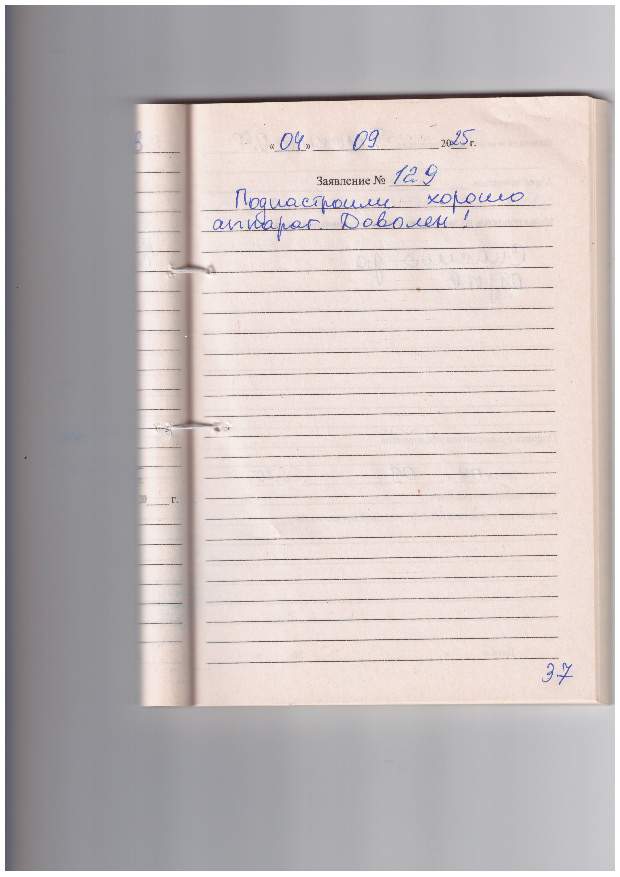 «04» 09 2025 г.
Заявление № 129
Поднастроили хорошо
аппарат. Доволен!
г.
37